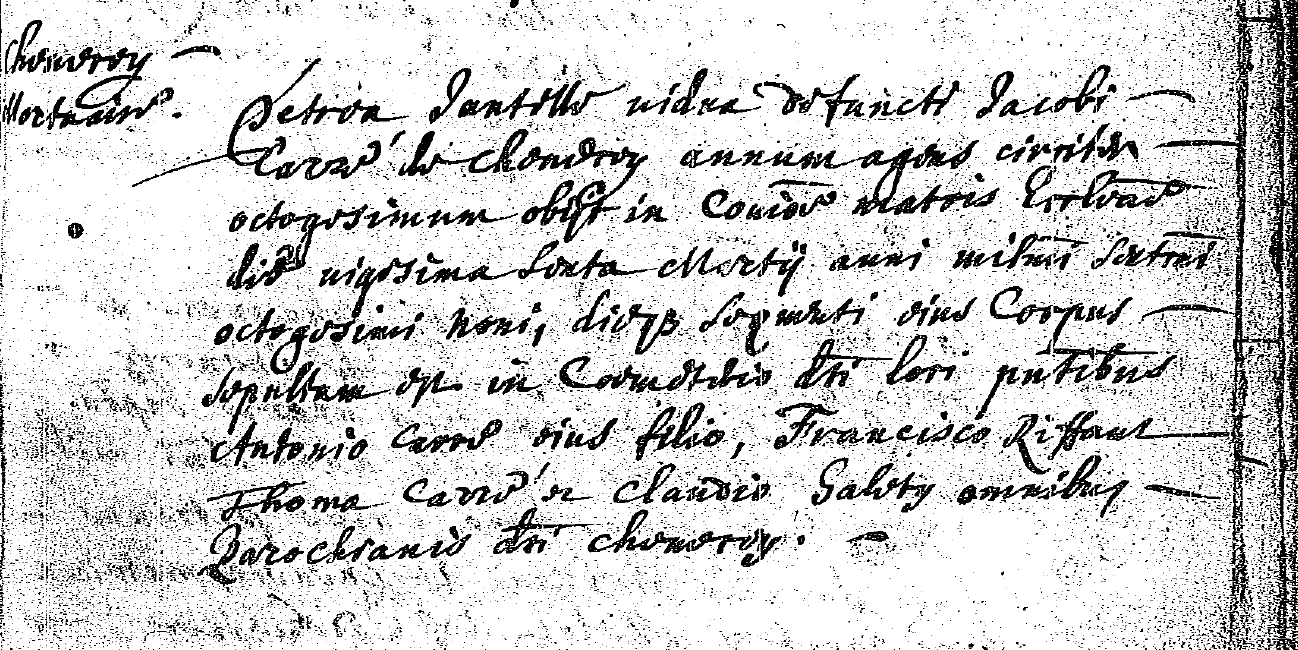 Cheneroy
Mortuaire.
Petroa Jantille uidua defuncti Jacobi
Carré de Cheneroy annum agens circiter
octogesimum obijt in Comōe matris Eccleae
die uigesima sexta Martij anni millmi sextmi
octogesimi noni, dieqȝ sequenti eius Corpus
sepultum est in Coemeterio dti loci pntibus
Antonio Carré eius filio, Francisco Riffaut
Thoma Carré et Claudio Galoty omnibus
Parochianis dti Cheneroy.